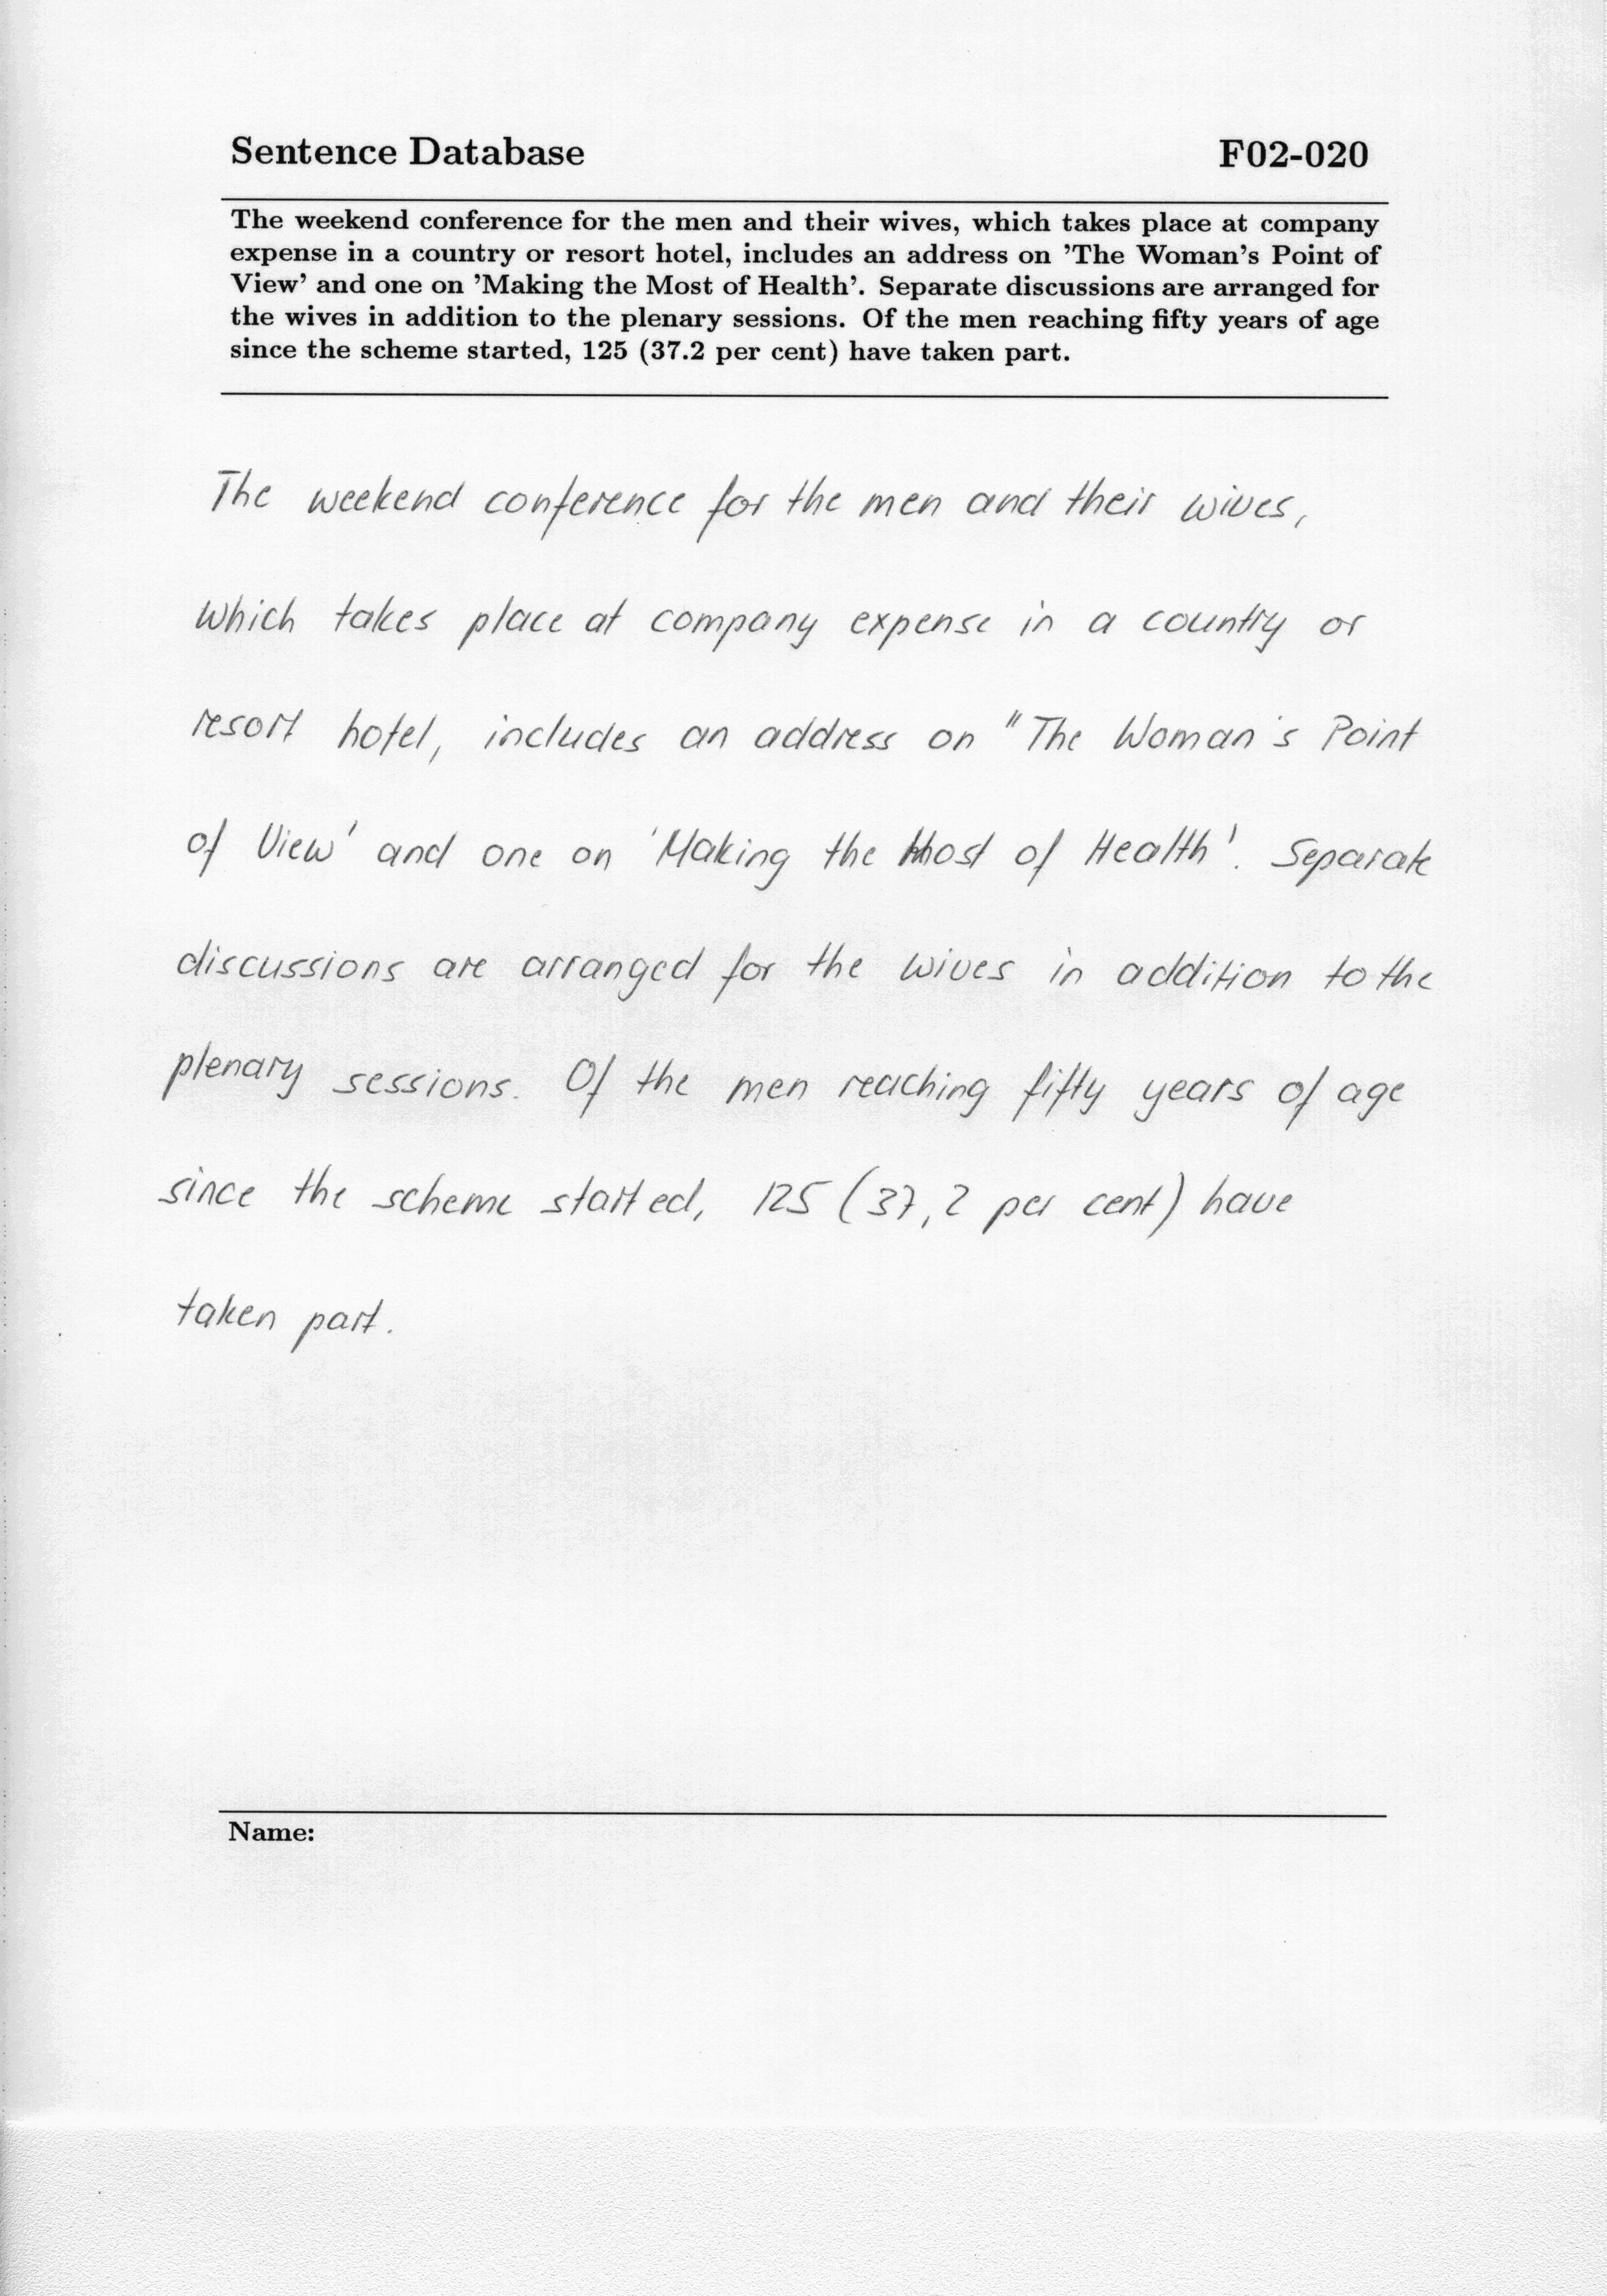 Sentence Database F02-020
The weekend conference for the men and their wives, which takes place at company
expense in a country or resort hotel, includes an address on 'The Woman's Point of
View' and one on 'Making the Most of Health'. Separate discussions are arranged for
the wives in addition to the plenary sessions. Of the men reaching fifty years of age
since the scheme started, 125 (37.2 per cent) have taken part.
The weekend conference for the men and their wives,
which takes place at company expense in a country or
resort hotel, includes an address on "The Woman's Point
of View' and one on 'Making the Most of Health'. Separate
discussions are arranged for the wives in addition to the
plenary sessions. Of the men reaching fifty years of age
since the scheme started, 125 (37,2 per cent) have
taken part.
Name: